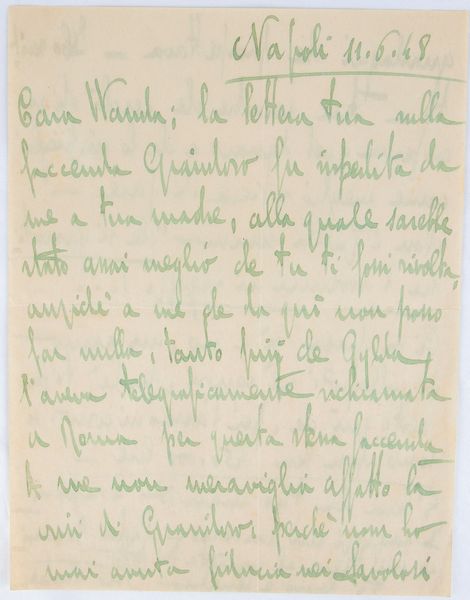 Napoli 11.6.48
Cara Wanda; la lettera tua sulla
faccenda Grandoso fu spedita da
me a tua madre, alla quale sarebbe
stato assai meglio che tu ti fossi rivolta,
anziché a me che da qui non posso
far nulla, tanto più che Gylda
t'aveva telegraficamente richiamata
a Roma per questa stessa faccenda
A me non meraviglia affatto la
crisi di Grandoso; perchè non ho
mai avuta fiducia nei